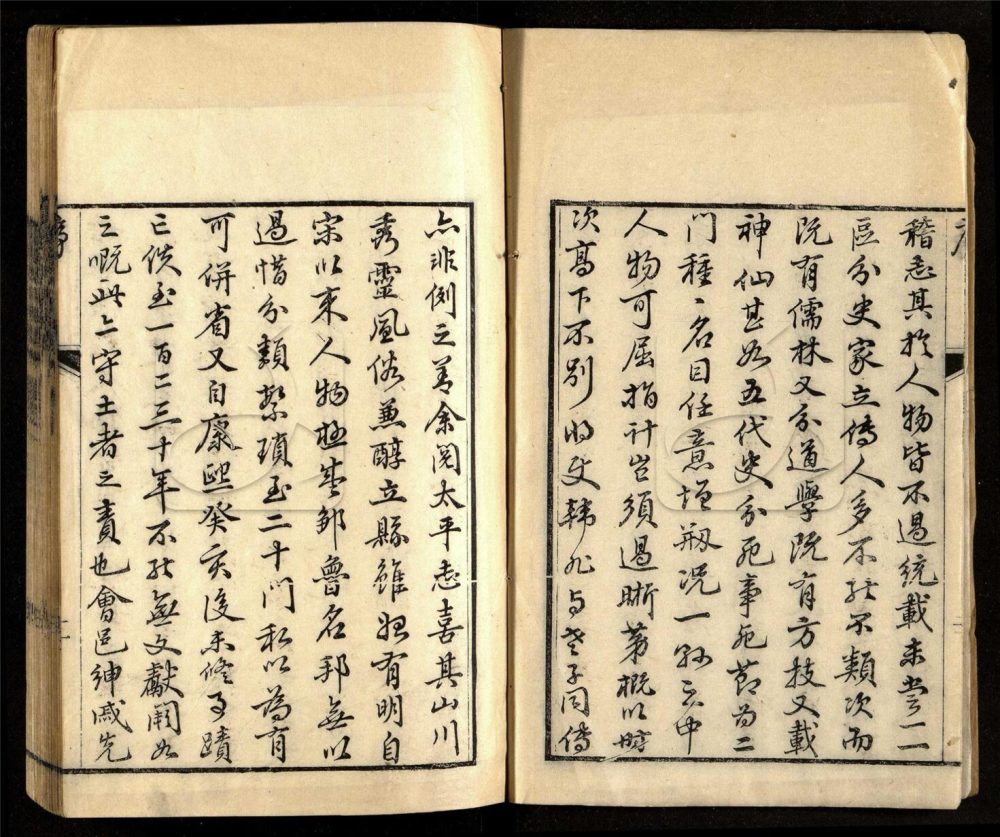 稽志其於人物皆不過統載未嘗一一
區分史家立傳人多不能不類次而
既有儒林又分道學既有方技又載
神仙甚如五代史分死事死節為二
門種〻名目任意增剏况一縣之中
人物可屈指計豈須過晣第概以時
次高下不別將史韓非與老子同傳
亦非例之善余閱太平志喜其山川
秀靈風俗兼醇立縣雖始有明自
宋以來人物極盛鄒魯名邦無以
過惜分類繁瑣至二十門私以為有
可併省又自康熙癸亥後未修事蹟
已佚至一百二三十年不能無文獻闕如
之嘅此亦守土者之責也會邑紳戚先